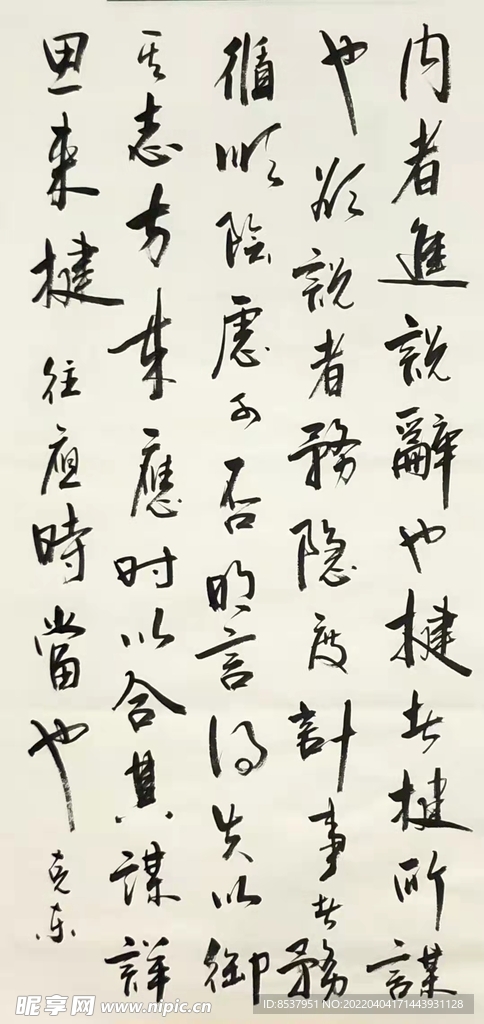 内者進說辭也揵者揵所謀
也欲說者務隐度計事者務
循順陰慮可否明言得失以御
其志方来應时以合其謀詳
思来揵往應時當也
克东
昵享网 www.nipic.cn
ID:8537951 NO:20220404171443931128